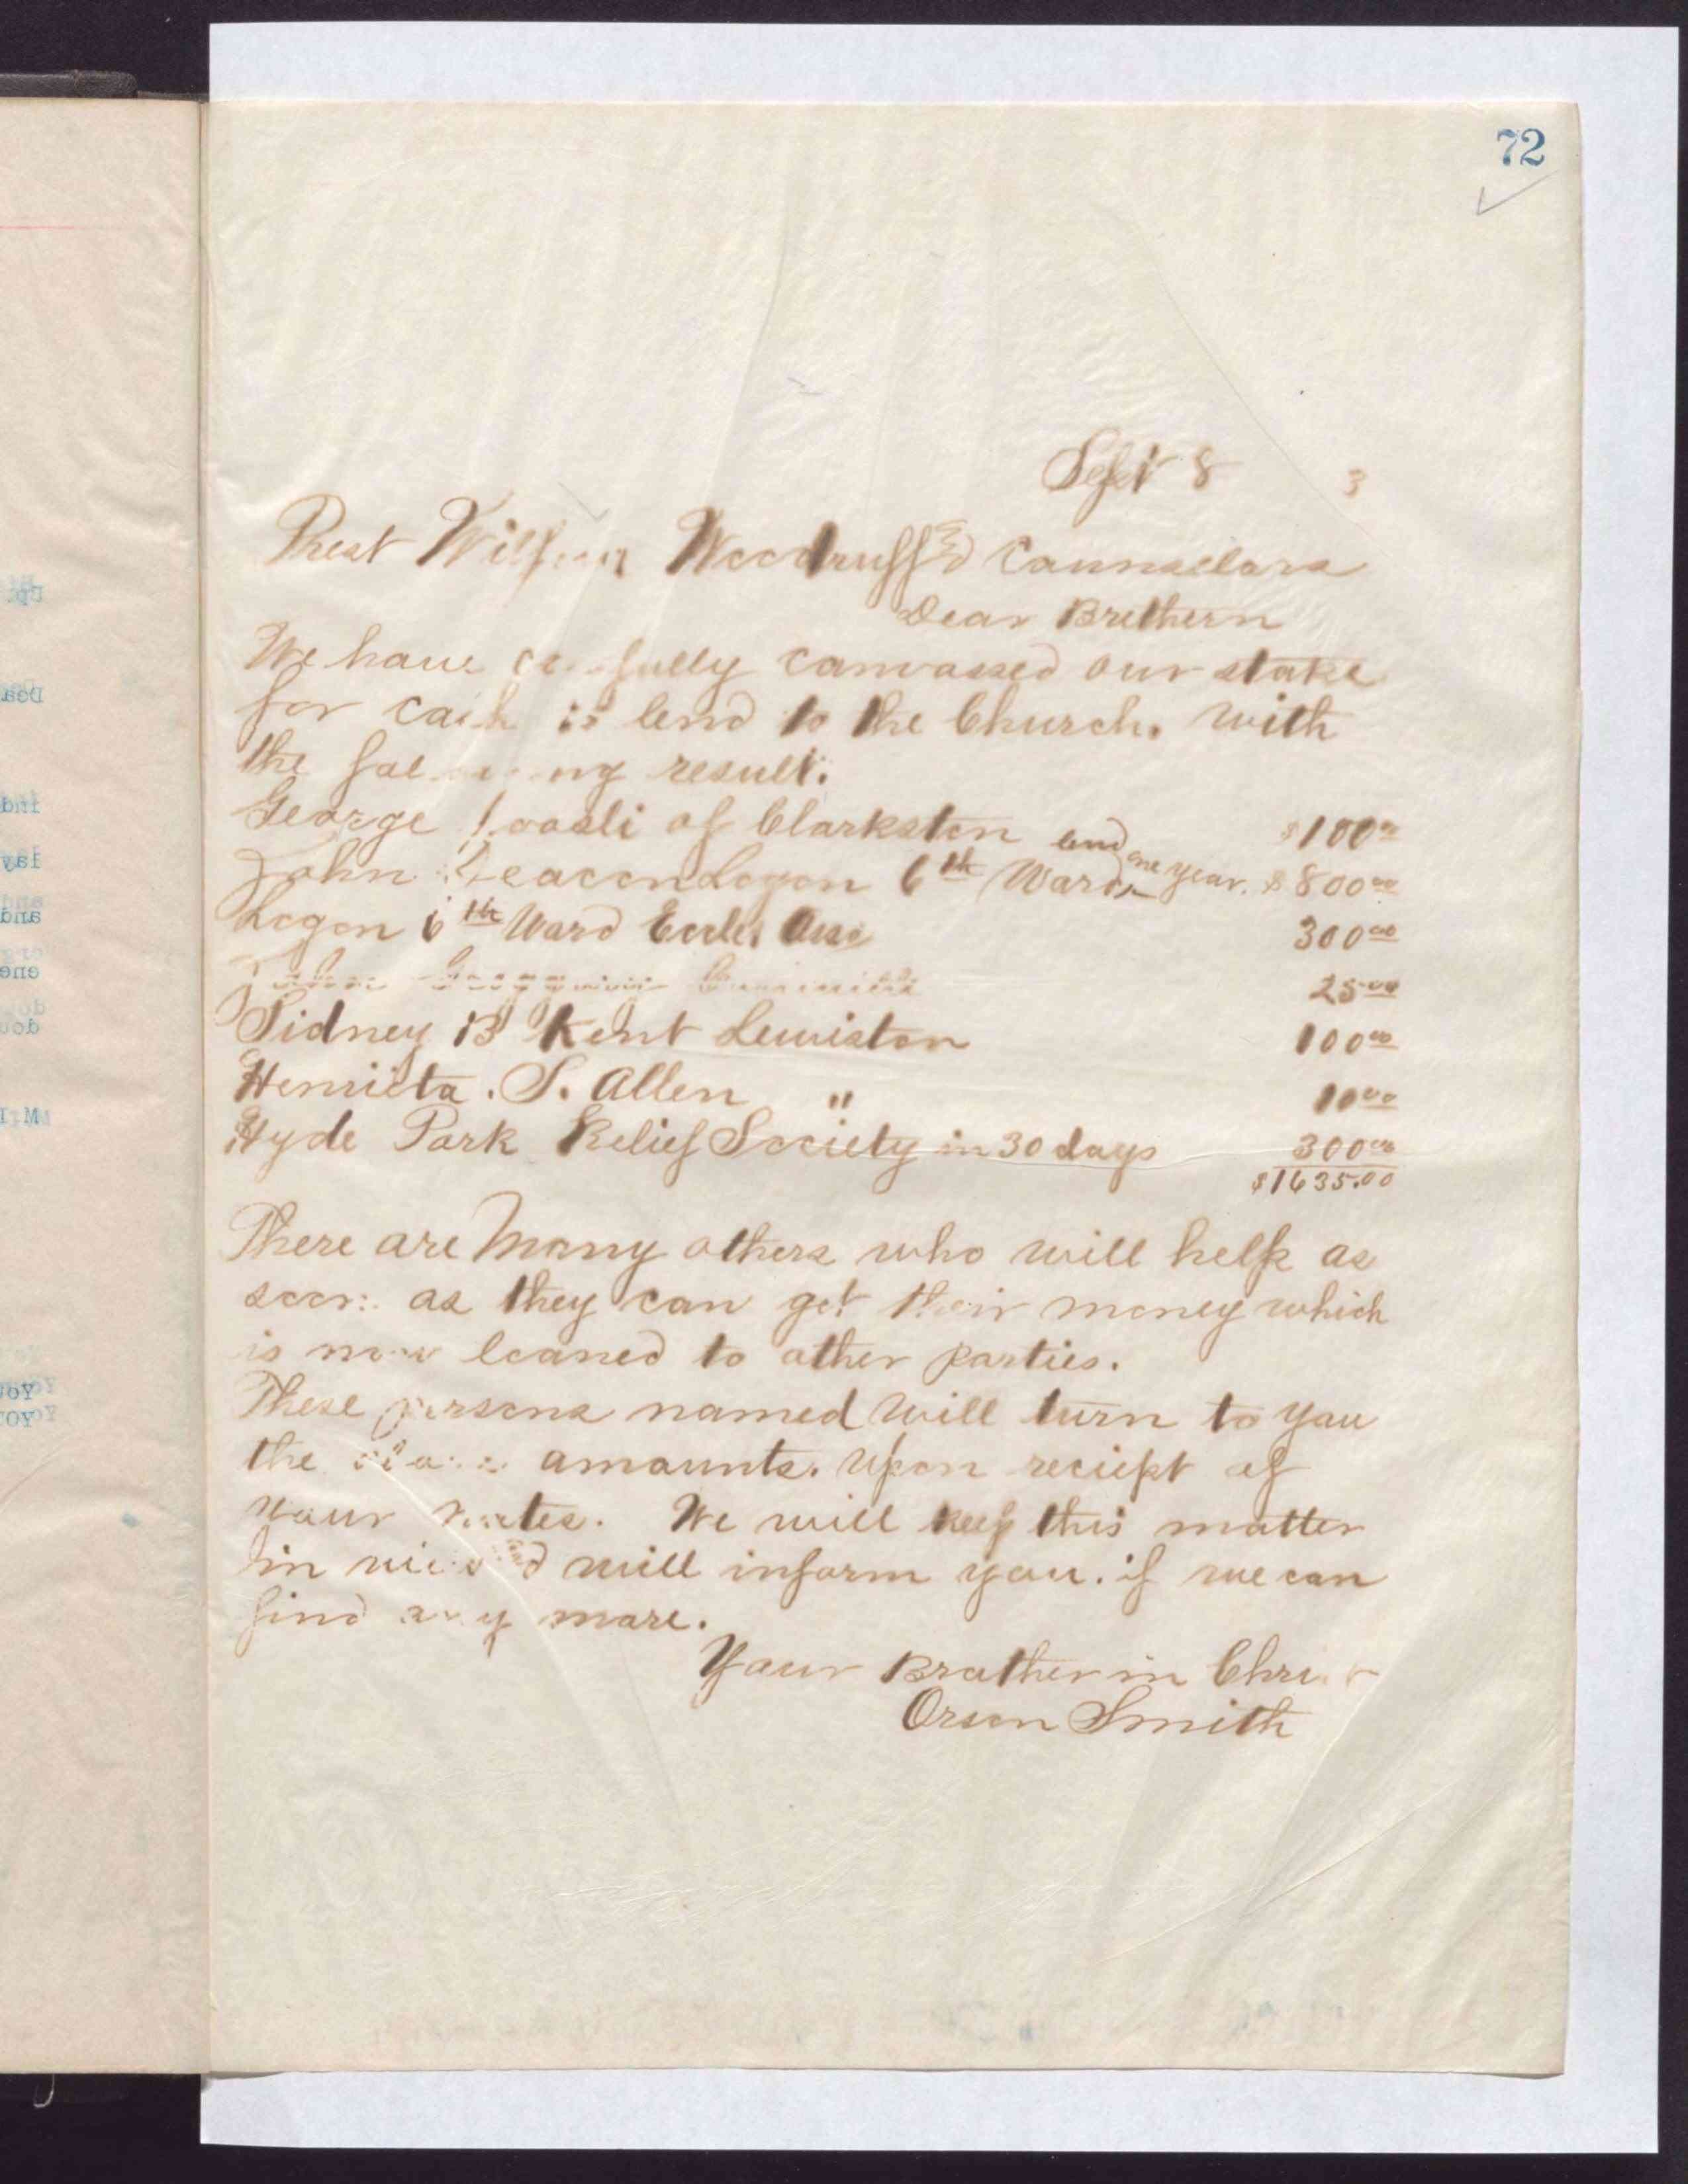 72
Sept 8 3
Prest Wilford Woodruff & Counselors
Dear Brethern
We have carefully canvassed our stake
for cash to lend to the Church. with
the following result.
George Loosli of Clarkston $100.00
John Deacon Logan 6th Ward end one year. $800.00
Logan 6th Ward Eccles Assn 300.00
John 25.00
Sidney B Kent Lewiston 100.00
Henrieta. S. Allen " 10.00
Hyde Park Relief Society in 30 days 300.00
$1635.00
There are Many others who will help as
soon as they can get their money which
is now loaned to other parties.
These persons named will turn to you
the above amounts. Upon reciept of
your notes. We will keep this matter
in view and will inform you. if we can
find any more.
Your Brother in Christ
Orson Smith